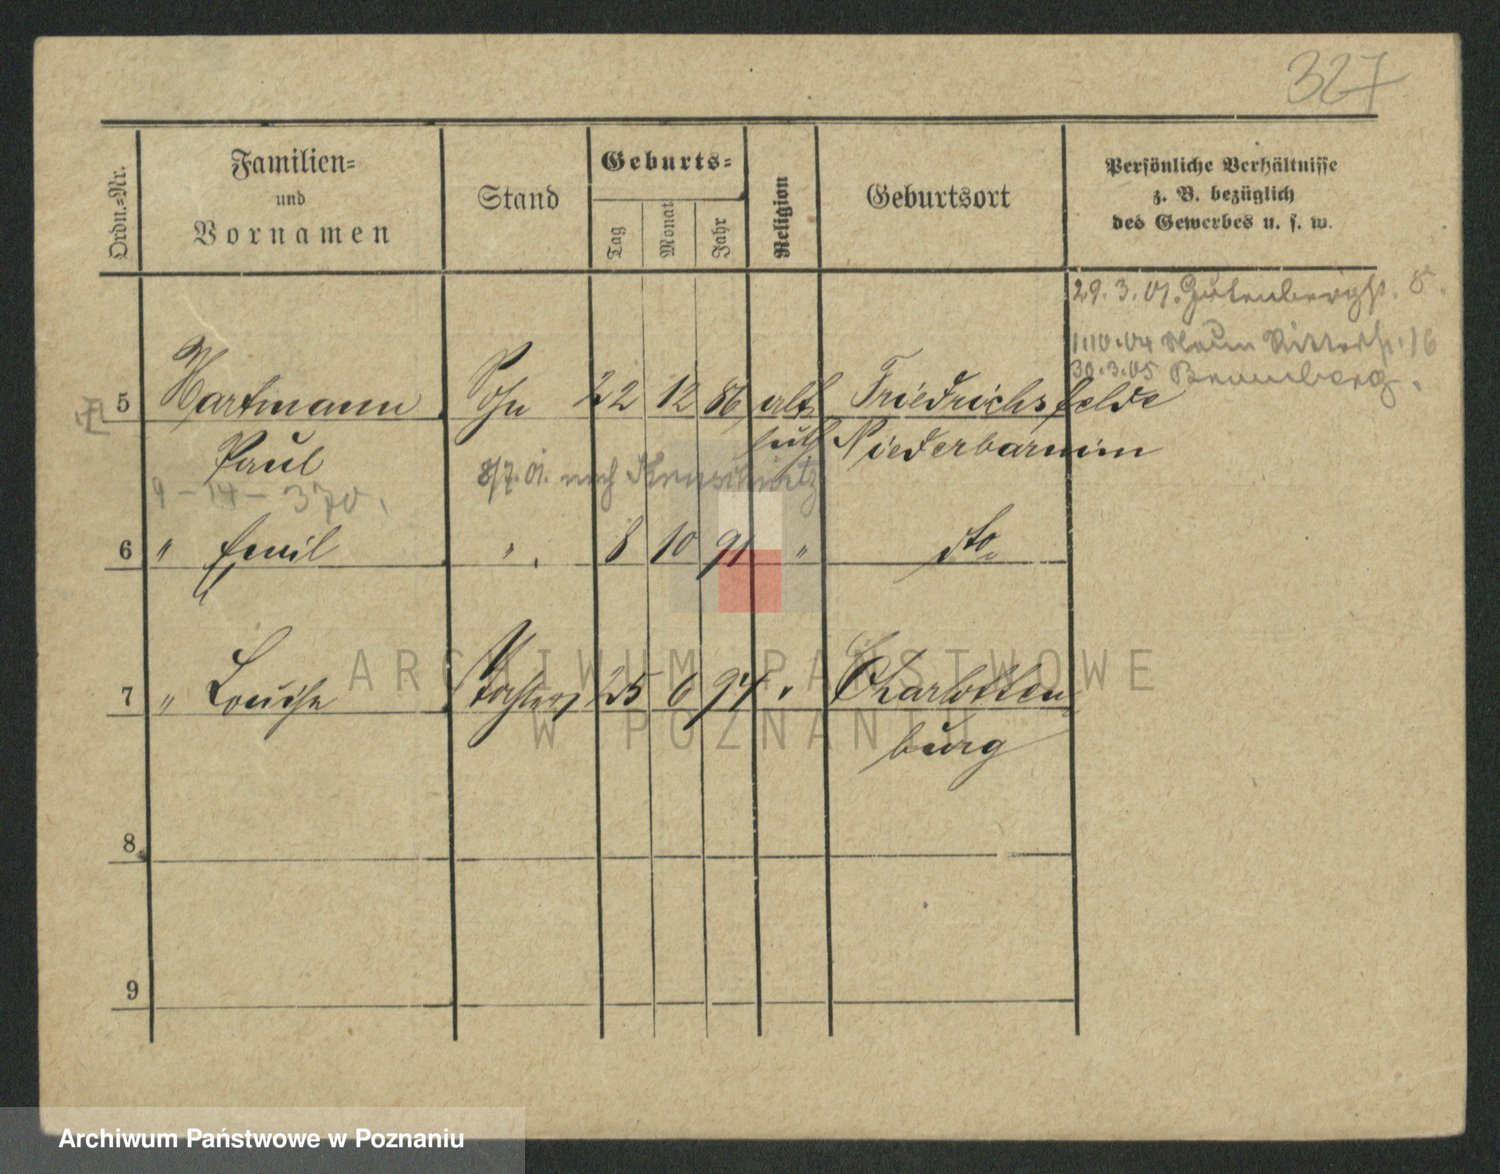 327
Ordn.=Nr.
Familien=
und
Vornamen
Stand
Geburts=
Tag
Monat
Jahr
Religion
Geburtsort
Persönliche Verhältnisse
z. B. bezüglich
des Gewerbes u. s. w.
29.3.01. Gutenbergst. 8
1.10.04 Ritterst. 16
30.3.05 Bromberg.
5 Hartmann Sohn 22 12 86 alt Friedrichsfelde
Paul luth Niederbarnim
9-14-370. 8/7.01. nach
6 " Emil " 8 10 91 " dto
7 " Louise Tochter 25 6 94 " Charlotten
burg
8
9
ARCHIWUM PAŃSTWOWE
W POZNANIU
Archiwum Państwowe w Poznaniu